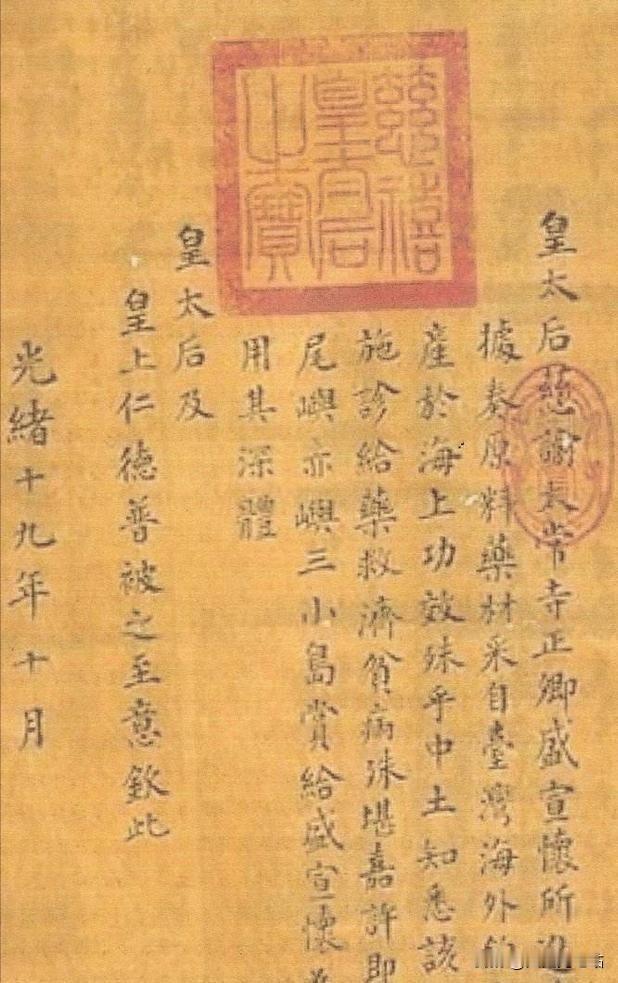 慈禧
皇太后
之寶
皇太后慈諭太常寺正卿盛宣懷所進
據奏原料藥材采自臺灣海外釣
產於海上功效殊乎中土知悉該
施診給藥救濟貧病殊堪嘉許即
尾嶼亦嶼三小島賞給盛宣懷
用其深體
皇太后及
皇上仁德普被之至意欽此
光緒十九年十月